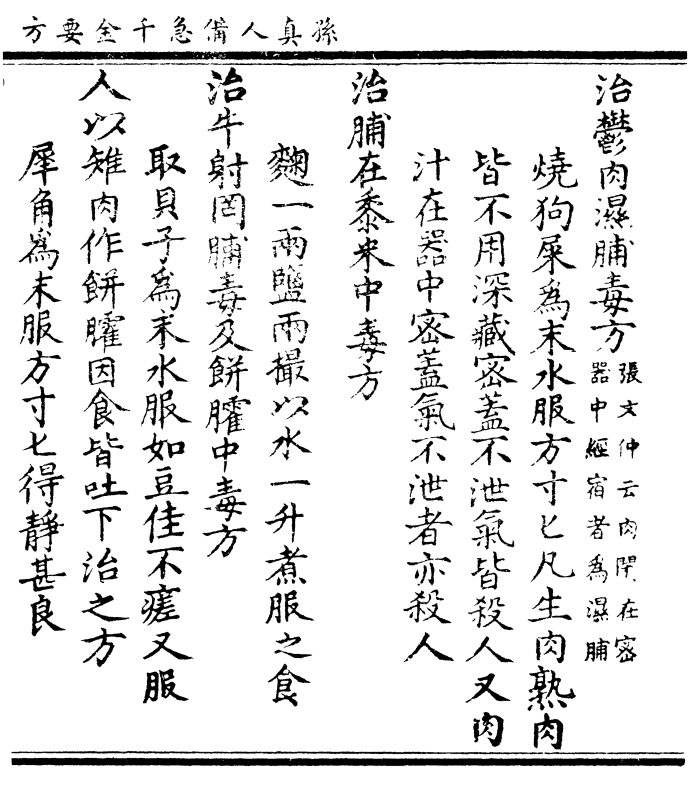 孫真人備急千金要方
治鬱肉濕脯毒方張文仲云肉閉在密
器中經宿者為濕脯
燒狗屎為末水服方寸匕凡生肉熟肉
皆不用深藏密蓋不泄氣皆殺人又肉
汁在器中密蓋氣不泄者亦殺人
治脯在黍米中毒方
麴一兩鹽兩撮以水一升煮服之食
治牛射罔脯毒及餅臛中毒方
取貝子為末水服如豆佳不瘥又服
人以雉肉作餅臛因食皆吐下治之方
犀角為末服方寸匕得靜甚良